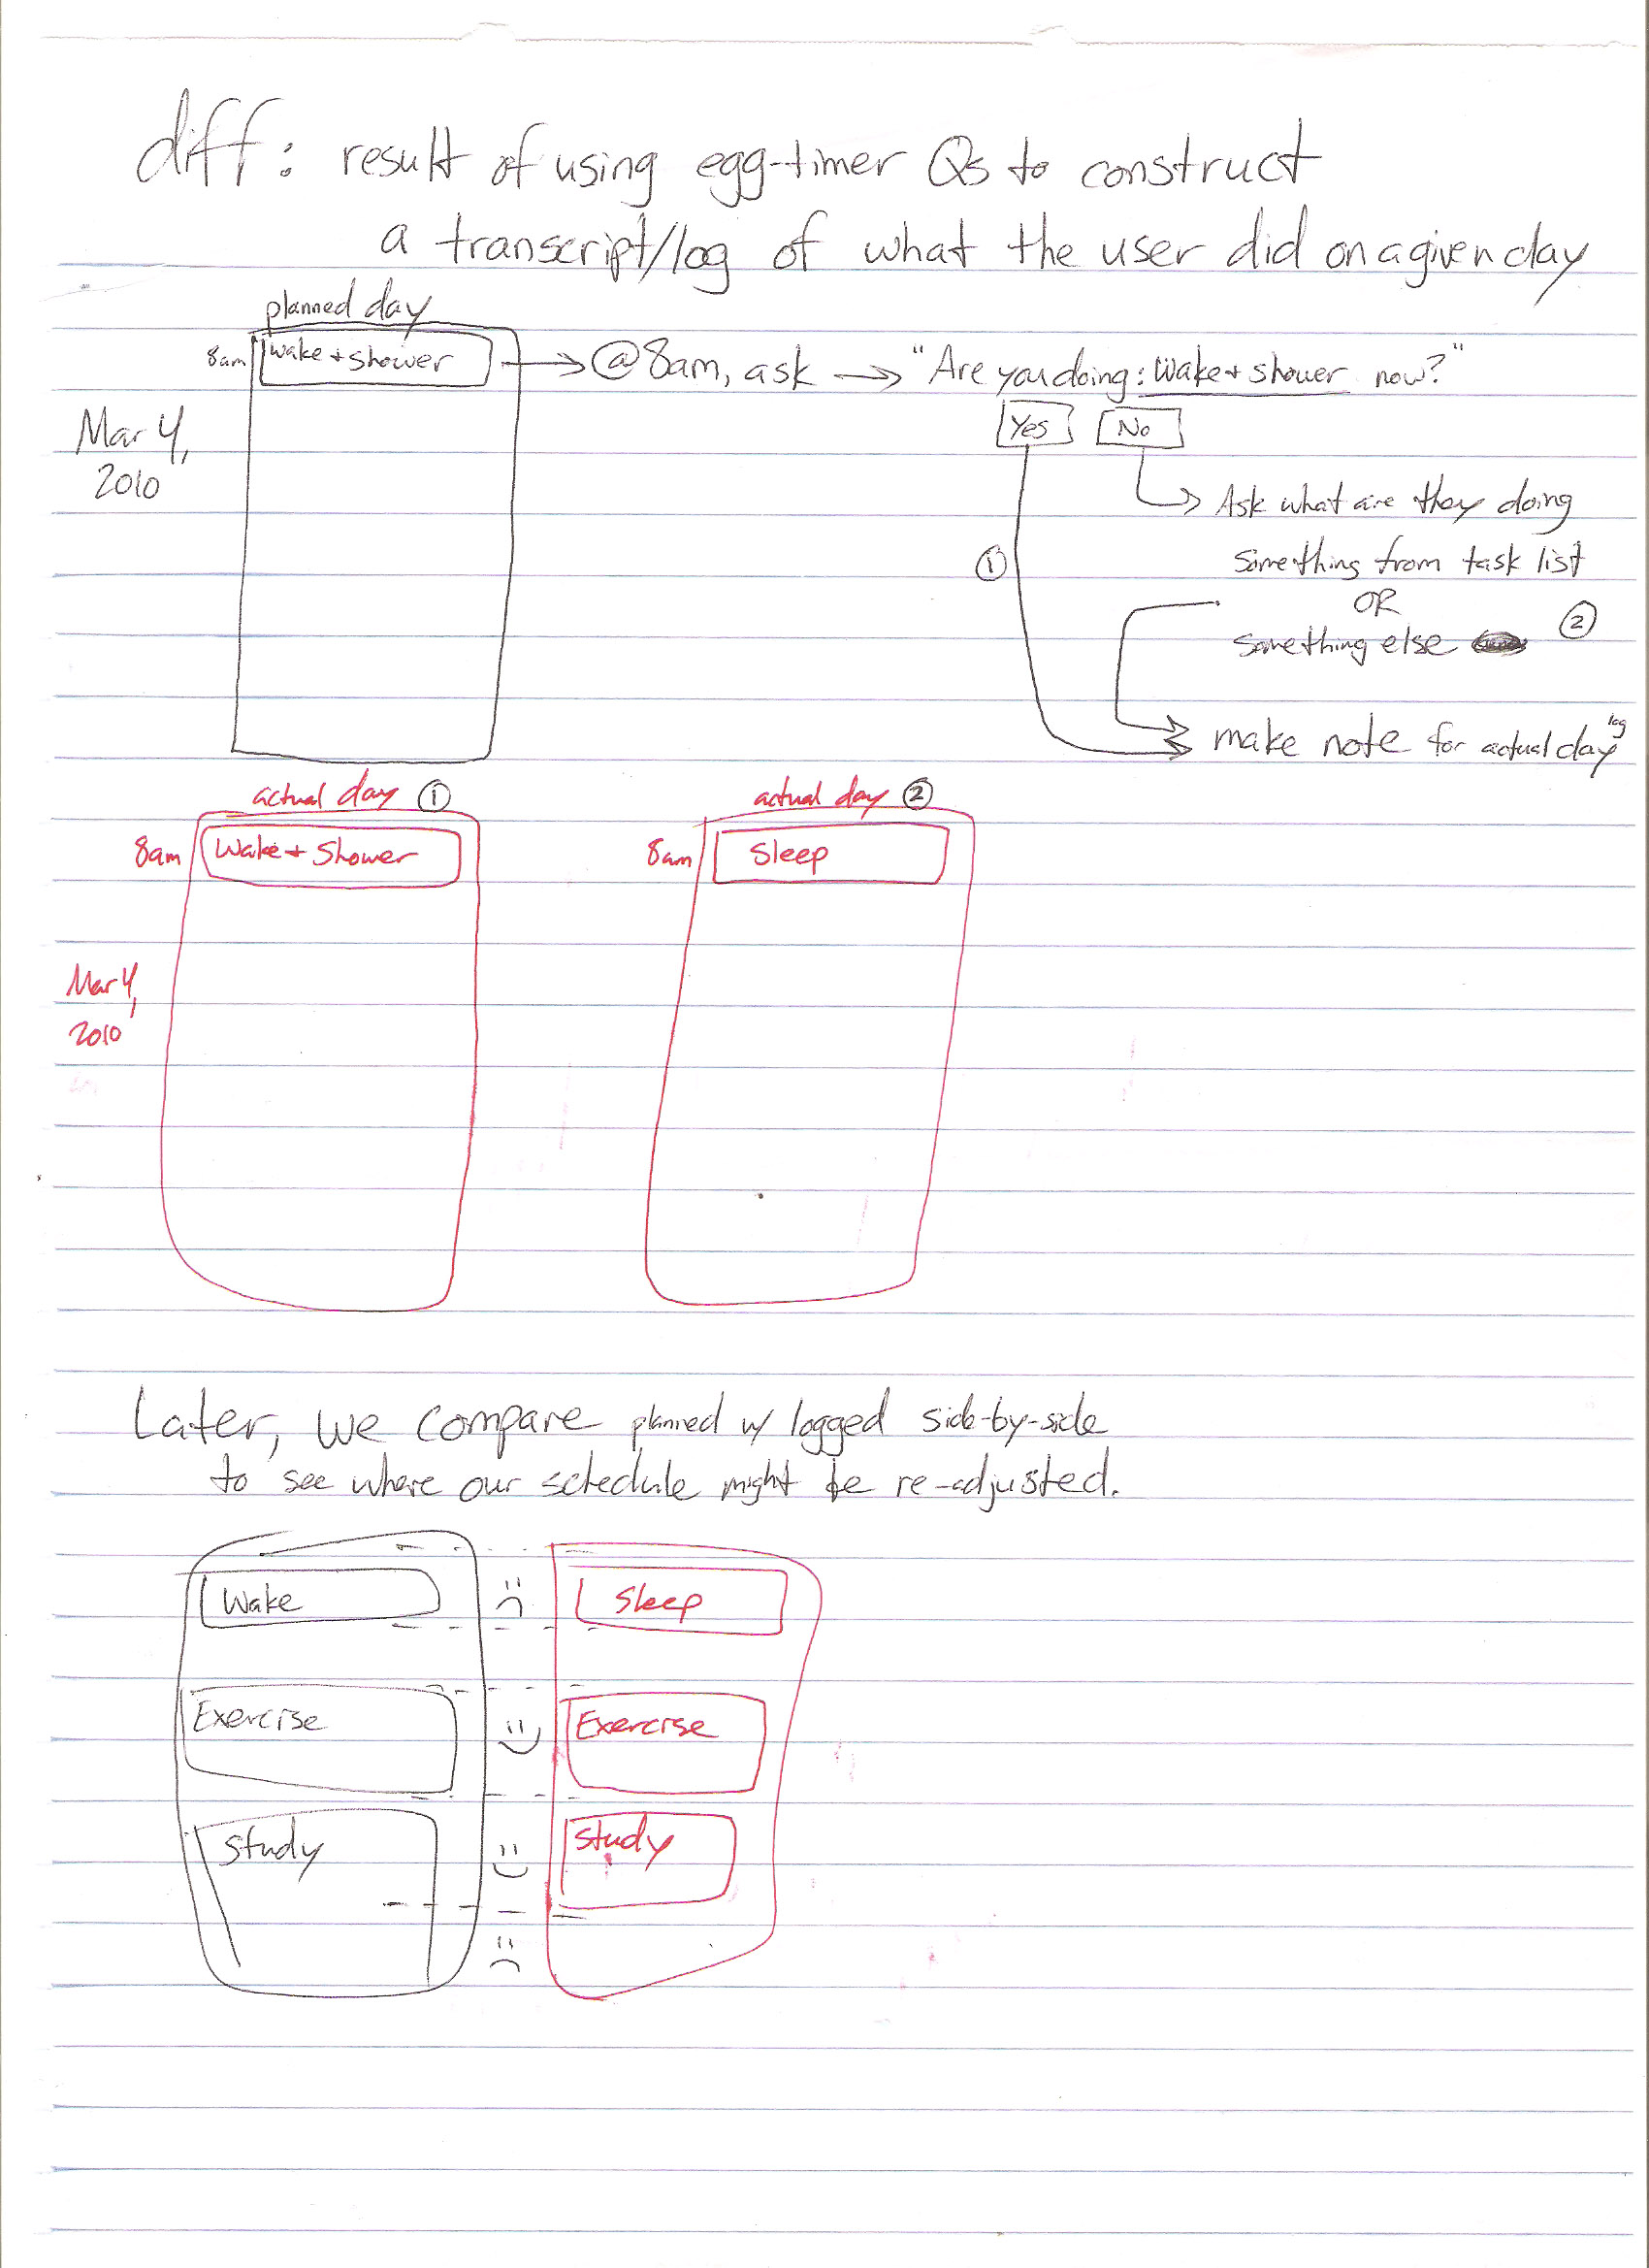 diff: result of using egg-timer Qs to construct
a transcript/log of what the user did on a given day
planned day
8am
Wake + Shower
@8am, ask
"Are you doing: Wake + Shower now?"
Yes
No
Mar 4,
2010
Ask what are they doing
①
Something from task list
OR
②
Something else
log
make note for actual day
actual day ①
8am
Wake + Shower
actual day ②
8am
Sleep
Mar 4,
2010
Later, we compare planned w/ logged side-by-side
to see where our schedule might be re-adjusted.
Wake
:(
Sleep
Exercise
:)
Exercise
Study
:)
Study
:(